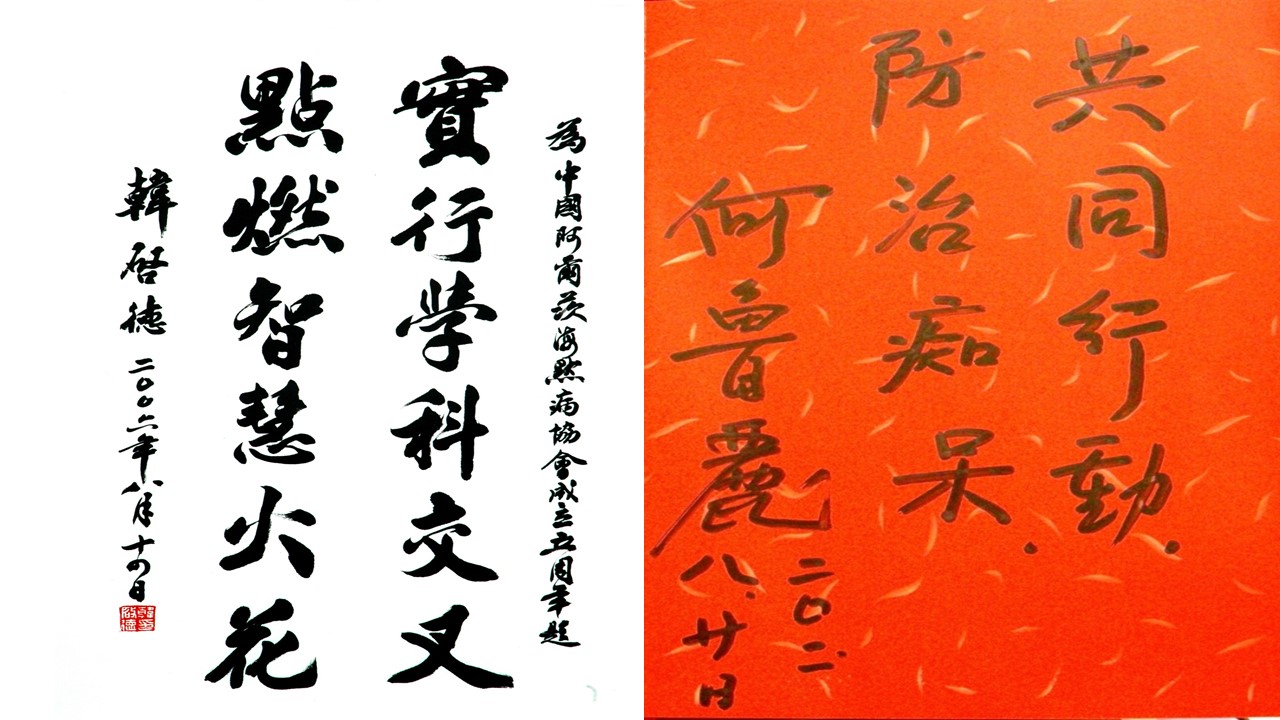 為中國阿爾茨海默病協會成立五周年題
實行學科交叉
點燃智慧火花
韓啓德 二〇〇六年八月十四日
共同行動.
防治痴呆.
何魯麗
二〇二.
八.廿日